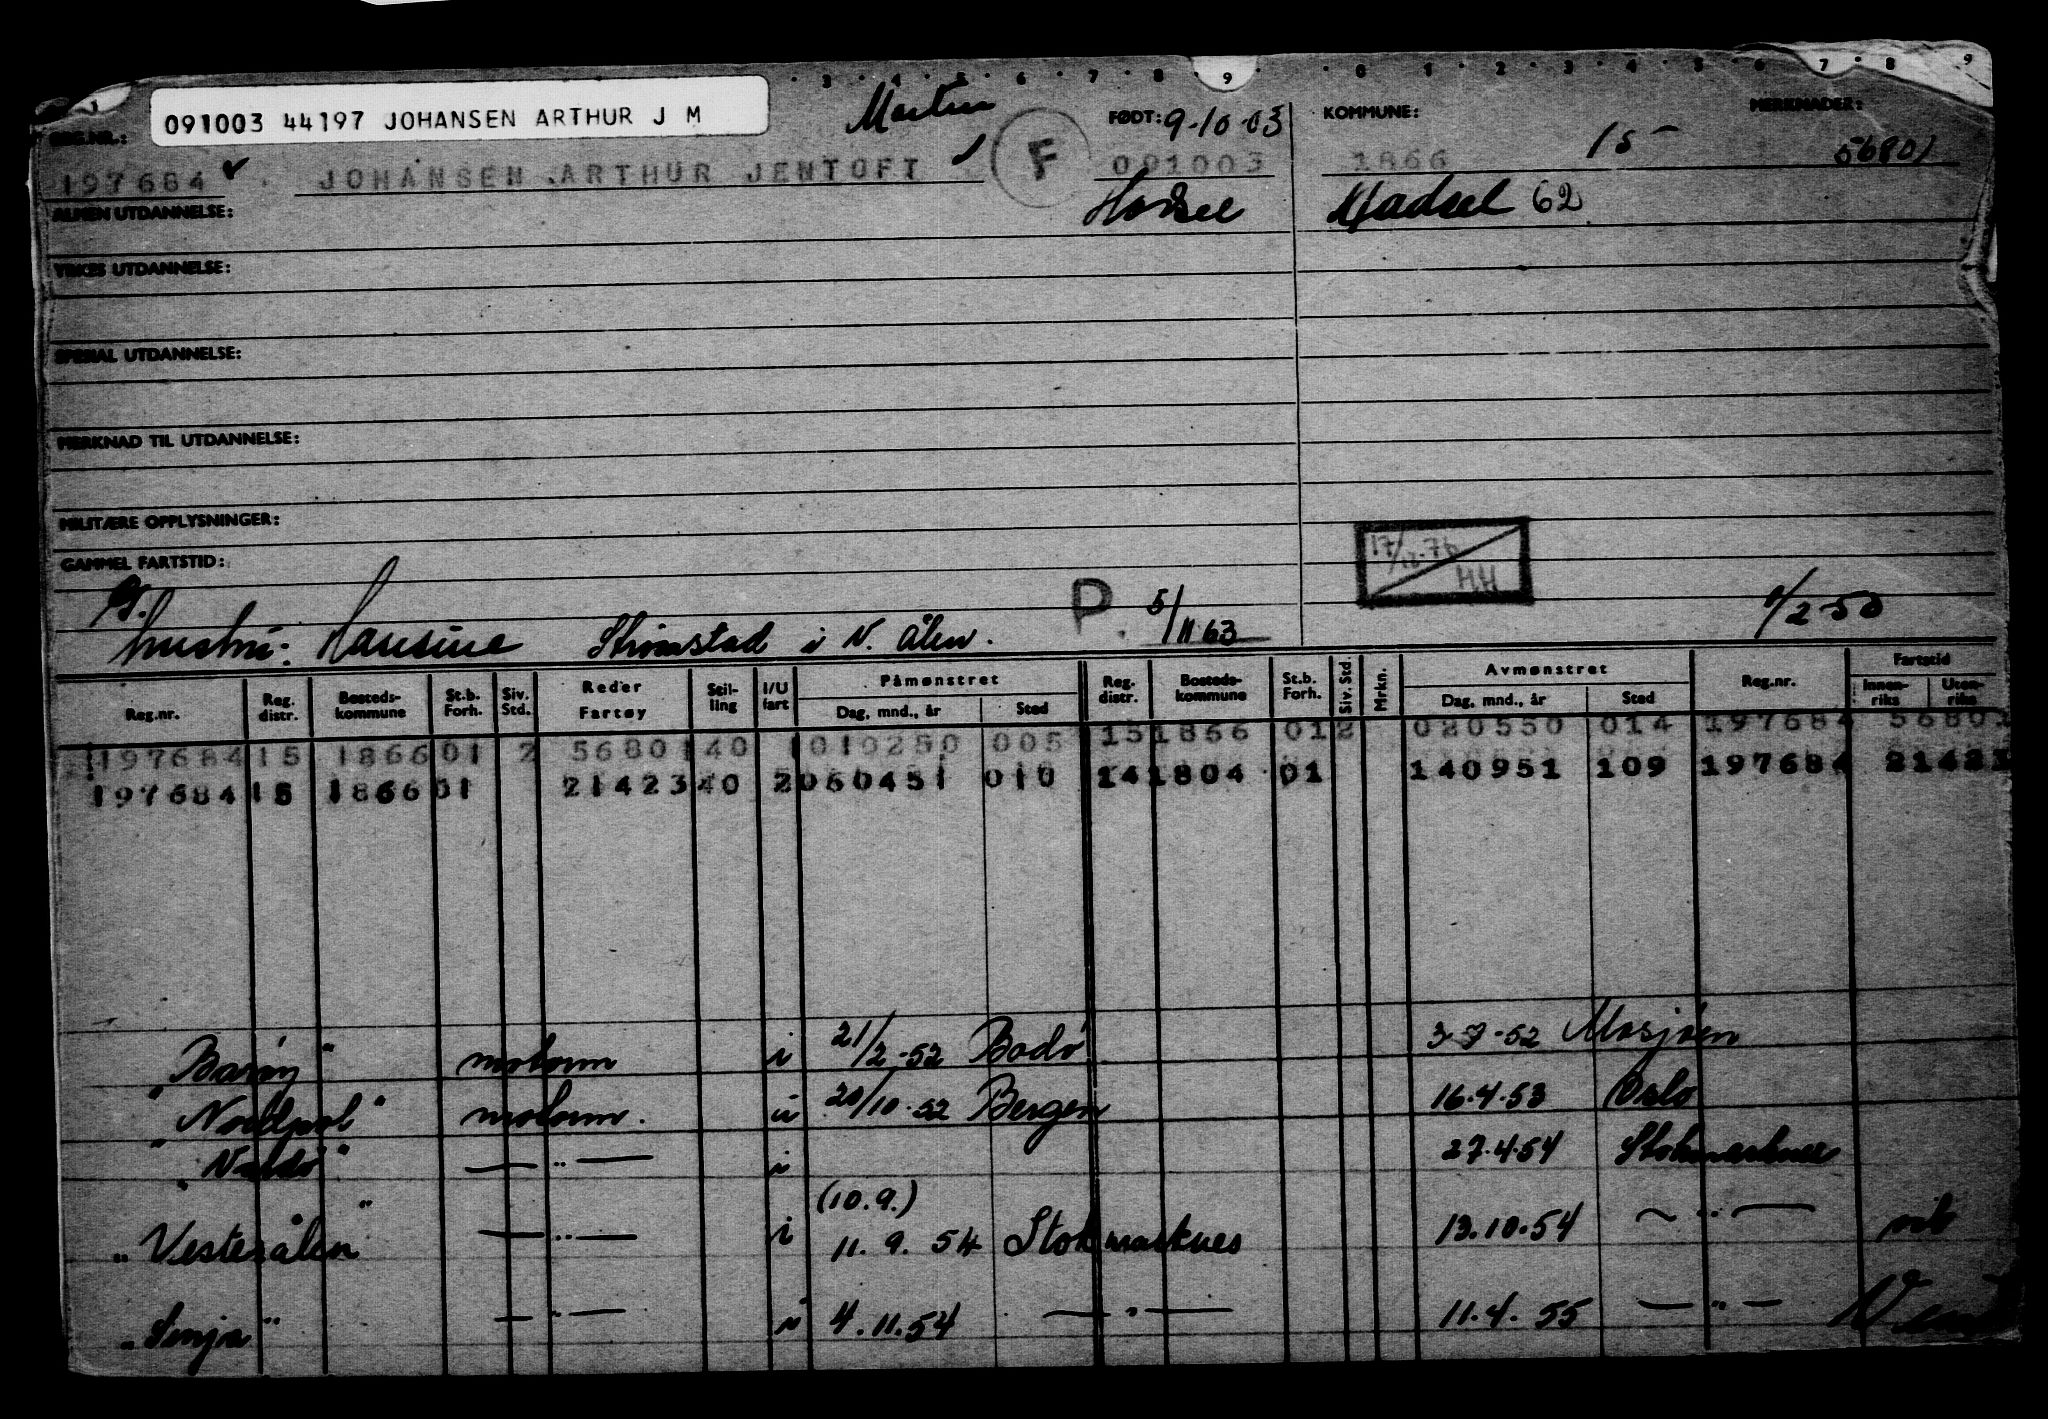 3 4 5 6 7 8 9 0 1 2 3 4 5 6 7 8 9
091003 44197 JOHANSEN ARTHUR J M
REG.NR.: FØDT: 9-10-03 KOMMUNE: 15 - MERKNADER: 56801
197684 JOHANSEN ARTHUR JENTOFT F 091003 1866
Hadsel 62
ALMEN UTDANNELSE:
YRKES UTDANNELSE:
SPESIAL UTDANNELSE:
MERKNAD TIL UTDANNELSE:
MILITÆRE OPPLYSNINGER:
17/12-76 HH
GAMMEL FARTSTID:
G.
hustru: Hansine Strømstad i N. Ålen. P. 5/11 63 1/2-50
Reg.nr. Reg. distr. Bosteds-kommune St.b. Forh. Siv. Std. Reder Fartøy Stil-ling I/U fart Påmønstret Dag, mnd., år Sted Reg. distr. Bosteds-kommune St.b. Forh. Siv. Std. Mrkn. Avmønstret Dag, mnd., år Sted Reg.nr. Fartstid Innen-riks Uten-riks
197684 15 1866 01 2 56801 40 1 010250 005 15 1866 01 2 020550 014 197684 56801
197684 15 1866 01 21423 40 2 060451 010 14 1804 01 140951 109 197684 21423
"Barøy" motorm i 21/2-52 Bodø 3-7-52 Mosjøen
"Nordpol" motorm. u 20/10-52 Bergen 16.4.53 Oslo
— " — i 27.4.54 Stokmarknes
(10.9.)
"Vesterålen" — " — i 11. 9. 54 Stokmarknes 13.10.54 — " —
"Senja" — " — i 4.11.54 — " — 11.4.55 — " —